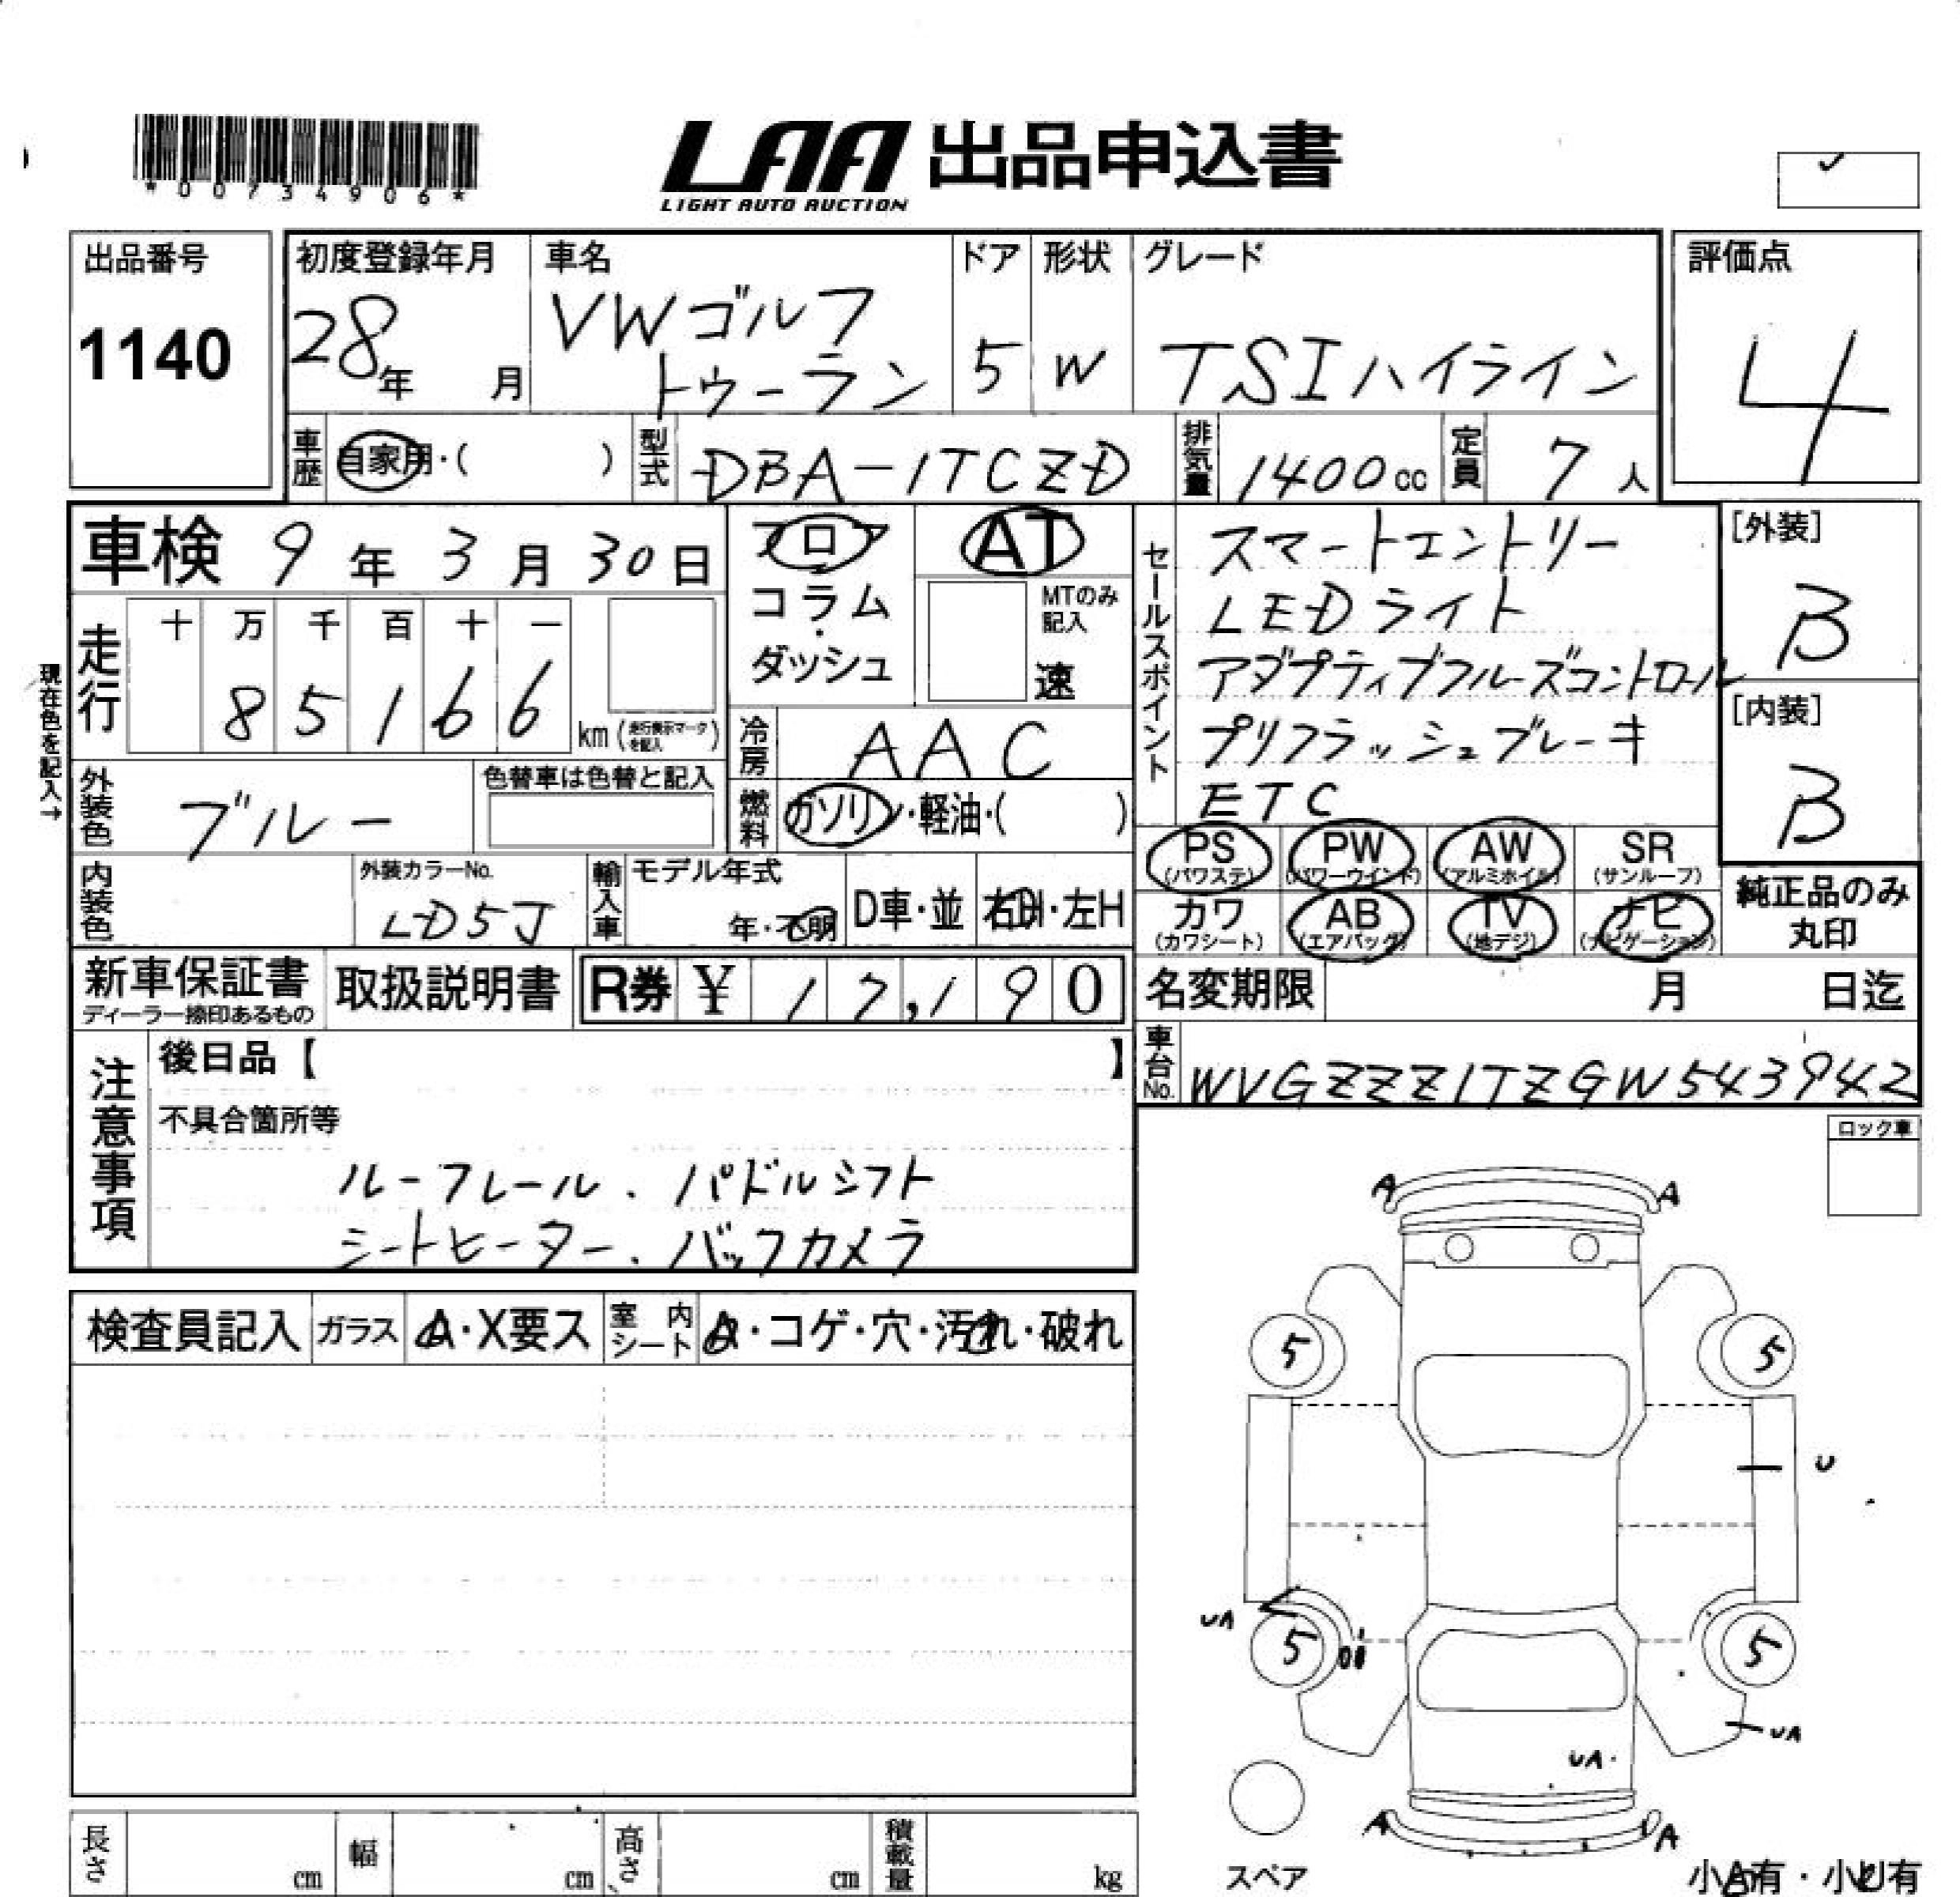 *00734906*
LAA 出品申込書
LIGHT AUTO AUCTION
出品番号
1140
初度登録年月
28年 月
車名
VWゴルフ
トゥーラン
ドア
5
形状
W
グレード
TSIハイライン
評価点
4
車歴 自家用・( )
型式 DBA-1TCZD
排気量 1400cc
定員 7人
車検 9年3月30日
フロア
コラム
・
ダッシュ
AT
MTのみ
記入
速
セールスポイント
スマートエントリー
LEDライト
アダプティブクルーズコントロール
プリクラッシュブレーキ
ETC
[外装]
B
[内装]
B
現在色を記入→
走行
十 万 千 百 十 一
8 5 1 6 6
km(走行表示マークを記入)
冷房 AAC
外装色 ブルー
色替車は色替と記入
燃料 ガソリン・軽油・( )
PS
(パワステ)
PW
(パワーウインド)
AW
(アルミホイル)
SR
(サンルーフ)
カワ
(カワシート)
AB
(エアバッグ)
TV
(地デジ)
ナビ
(ナビゲーション)
純正品のみ
丸印
内装色
外装カラーNo.
LD5J
輸入車
モデル年式
年・不明
D車・並
右H・左H
新車保証書
ディーラー捺印あるもの
取扱説明書
R券 ¥ 17,190
名変期限 月 日迄
車台No. WVGZZZ1TZGW543942
注意事項
後日品【 】
不具合箇所等
ルーフレール．パドルシフト
シートヒーター．バックカメラ
ロック車
検査員記入
ガラス A・X要ス
室内シート A・コゲ・穴・汚れ・破れ
A A
5 5
U
UA
5 5
UA
UA
A UA
スペア
小A有・小U有
長さ cm
幅 cm
高さ cm
積載量 kg